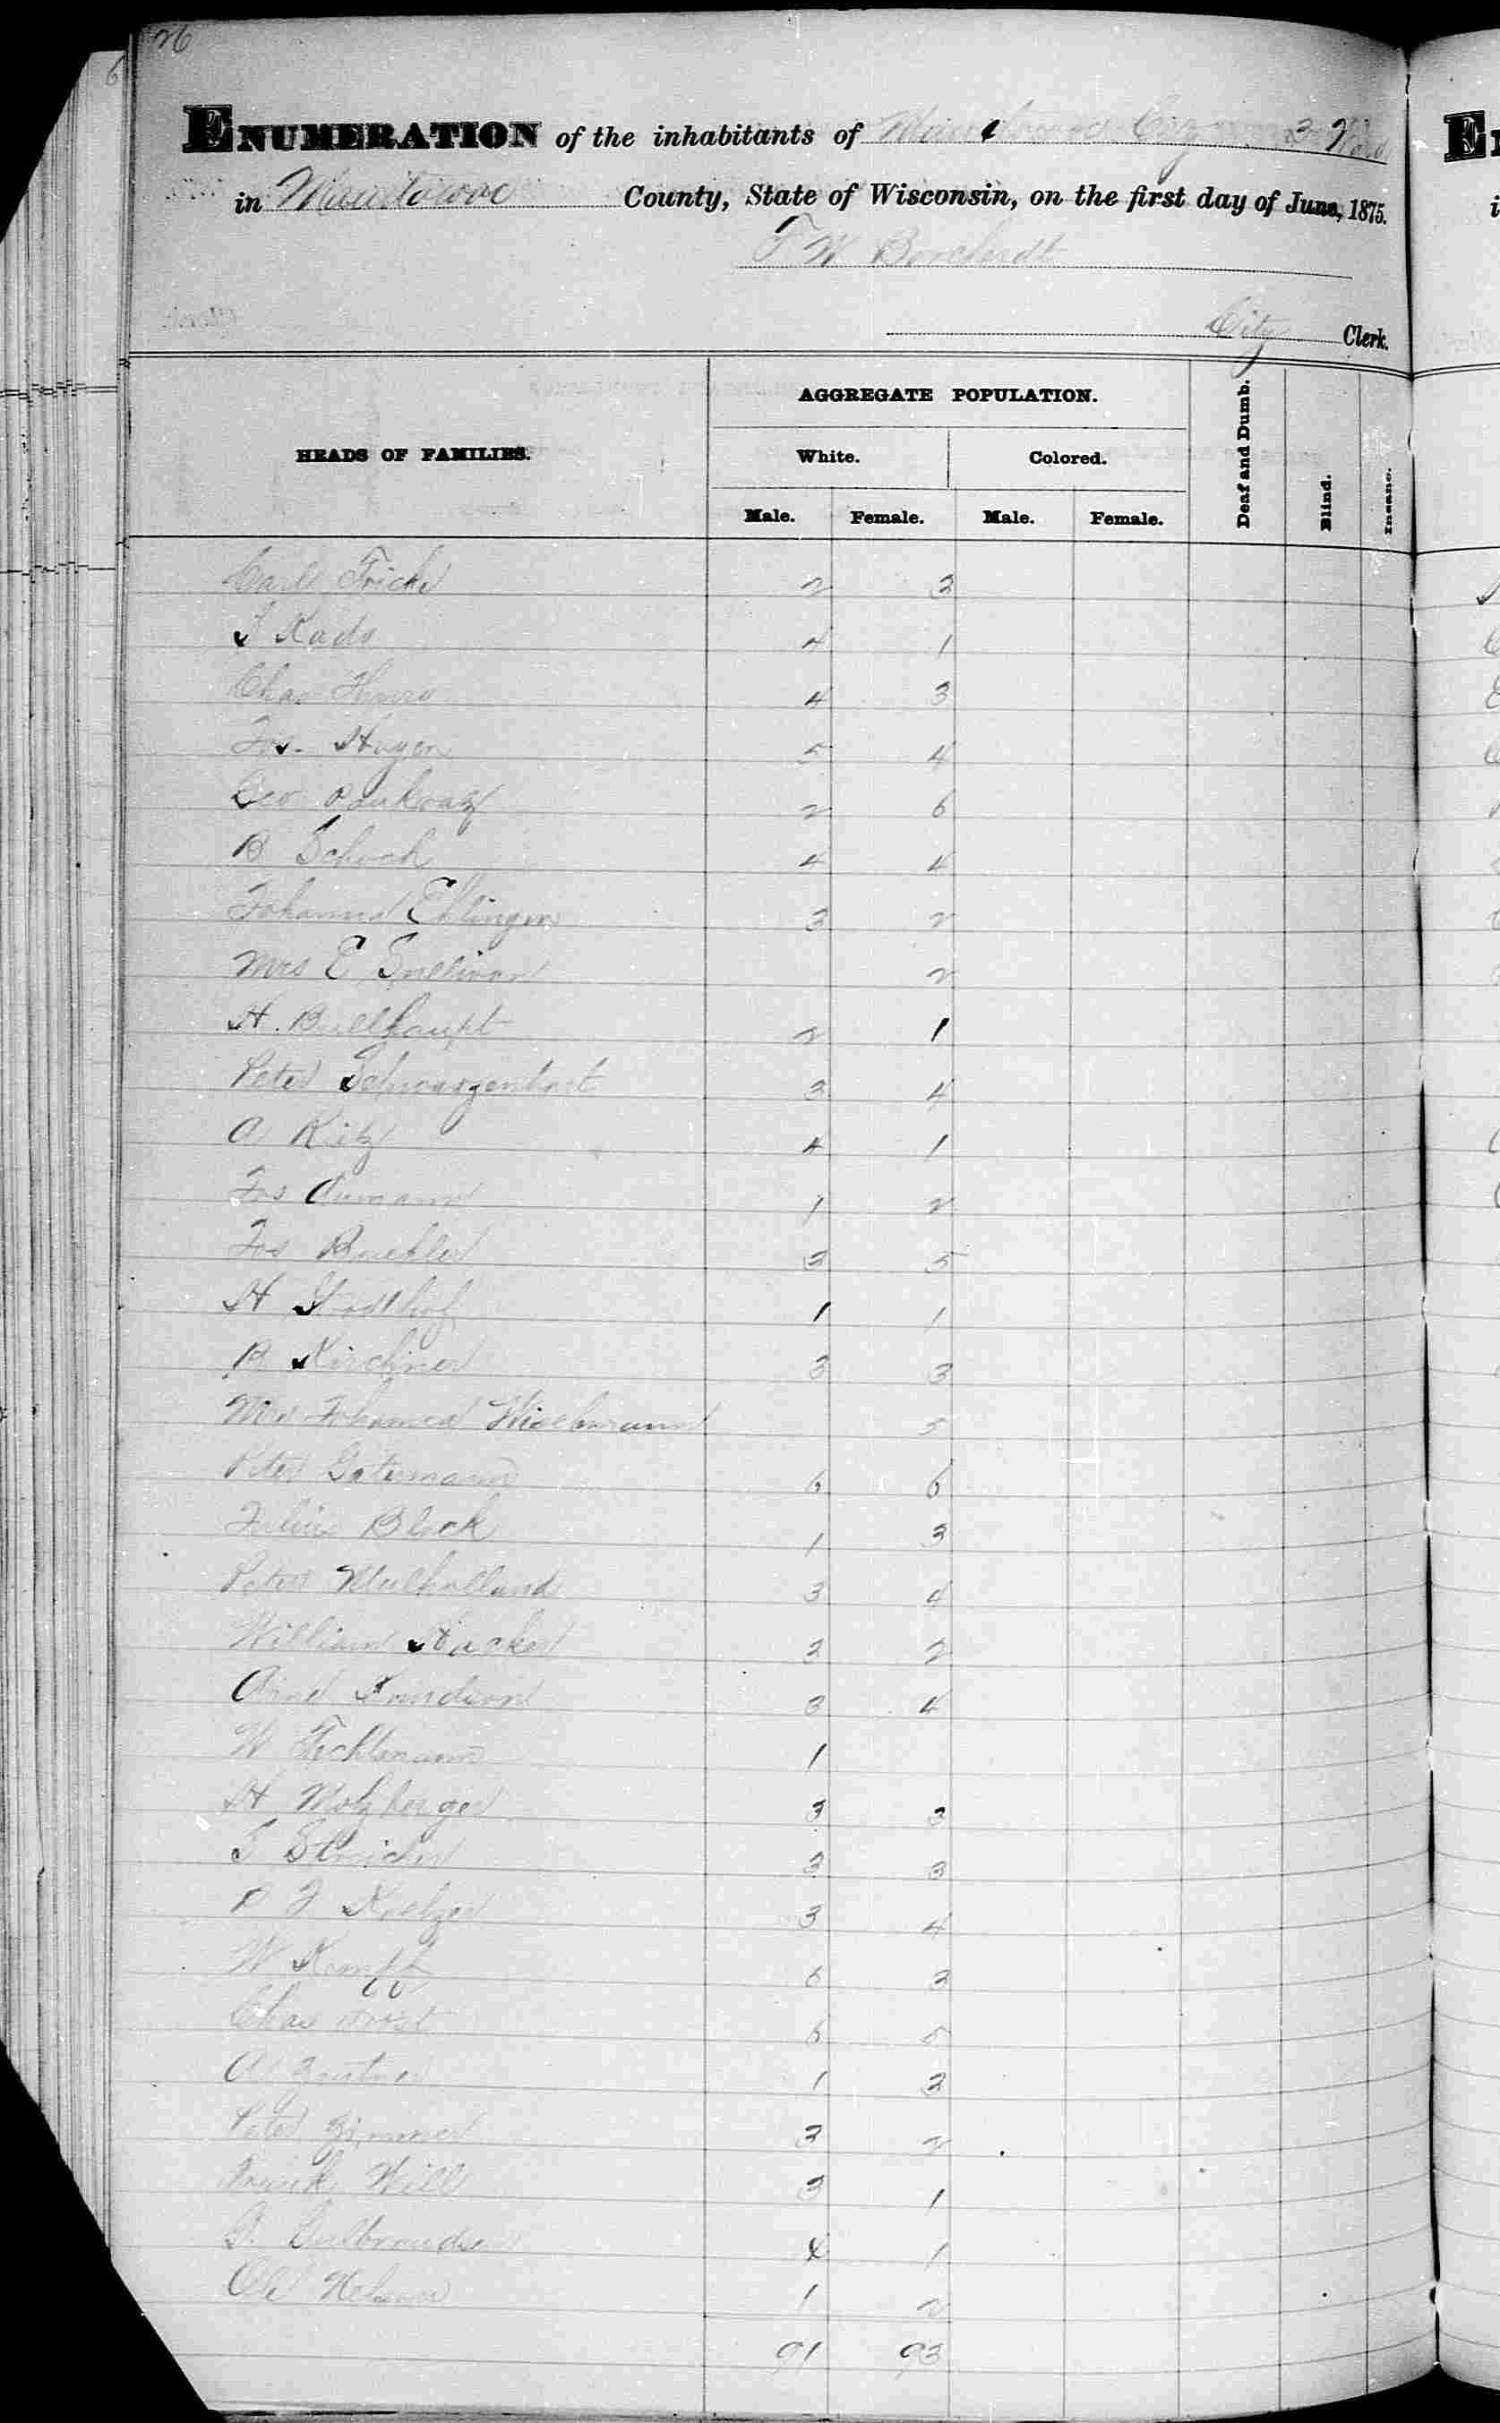 26
ENUMERATION of the inhabitants of Manitowoc City 3 Ward
in Manitowoc County, State of Wisconsin, on the first day of June, 1875.
F W Borcherdt
City Clerk.
HEADS OF FAMILIES.
AGGREGATE POPULATION.
White. Colored.
Male. Female. Male. Female. Deaf and Dumb. Blind. Insane.
Carl Fricke 2 3
4 1
Chas 4 3
Jos. Hagen 5 4
Geo Pankratz 2 6
B Schoch 4 4
Johanna Ehlinger 3 2
Mrs E Sullivan 2
H. Bullhaupt 2 1
Peter Schwarzenbart 3 4
A Kitz 4 1
Jos Aumann 1 2
Jos Buehler 3 5
H 1 1
B Kirchner 3 3
Mrs Johanna Wiechmann 5
Peter Gatermann 6 6
Julius Block 1 3
Peter Mulholland 3 4
William Hacker 3 2
3 4
W Techtmann 1
H Molzberger 3 3
S 3 3
P J Koelzer 3 4
W Kempf 6 3
Chas 6 5
A Zentner 1 3
Peter Zimmer 3 2
Frank Will 3 1
G. Gulbrandsen 4 1
Ole Nelson 1 2
91 93